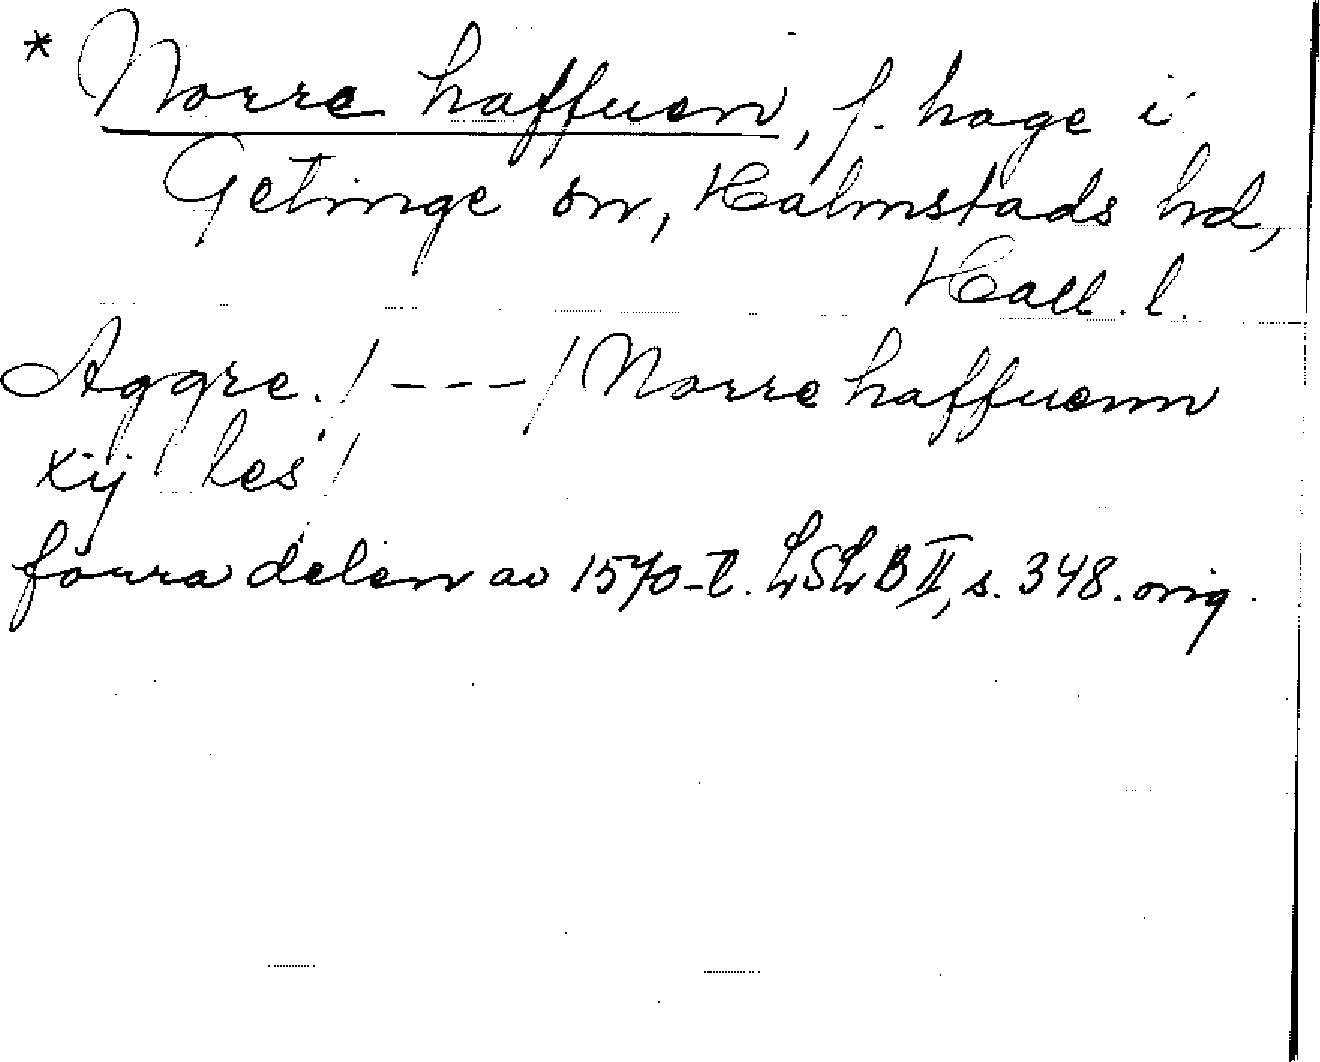 * Norre haffuen, f. hage i
Getinge sn, Halmstads hd,
Hall. l.
Aggre. / --- / Norre haffuenn
xij les /
förra delen av 1570-t. LSLB II, s. 348. orig.